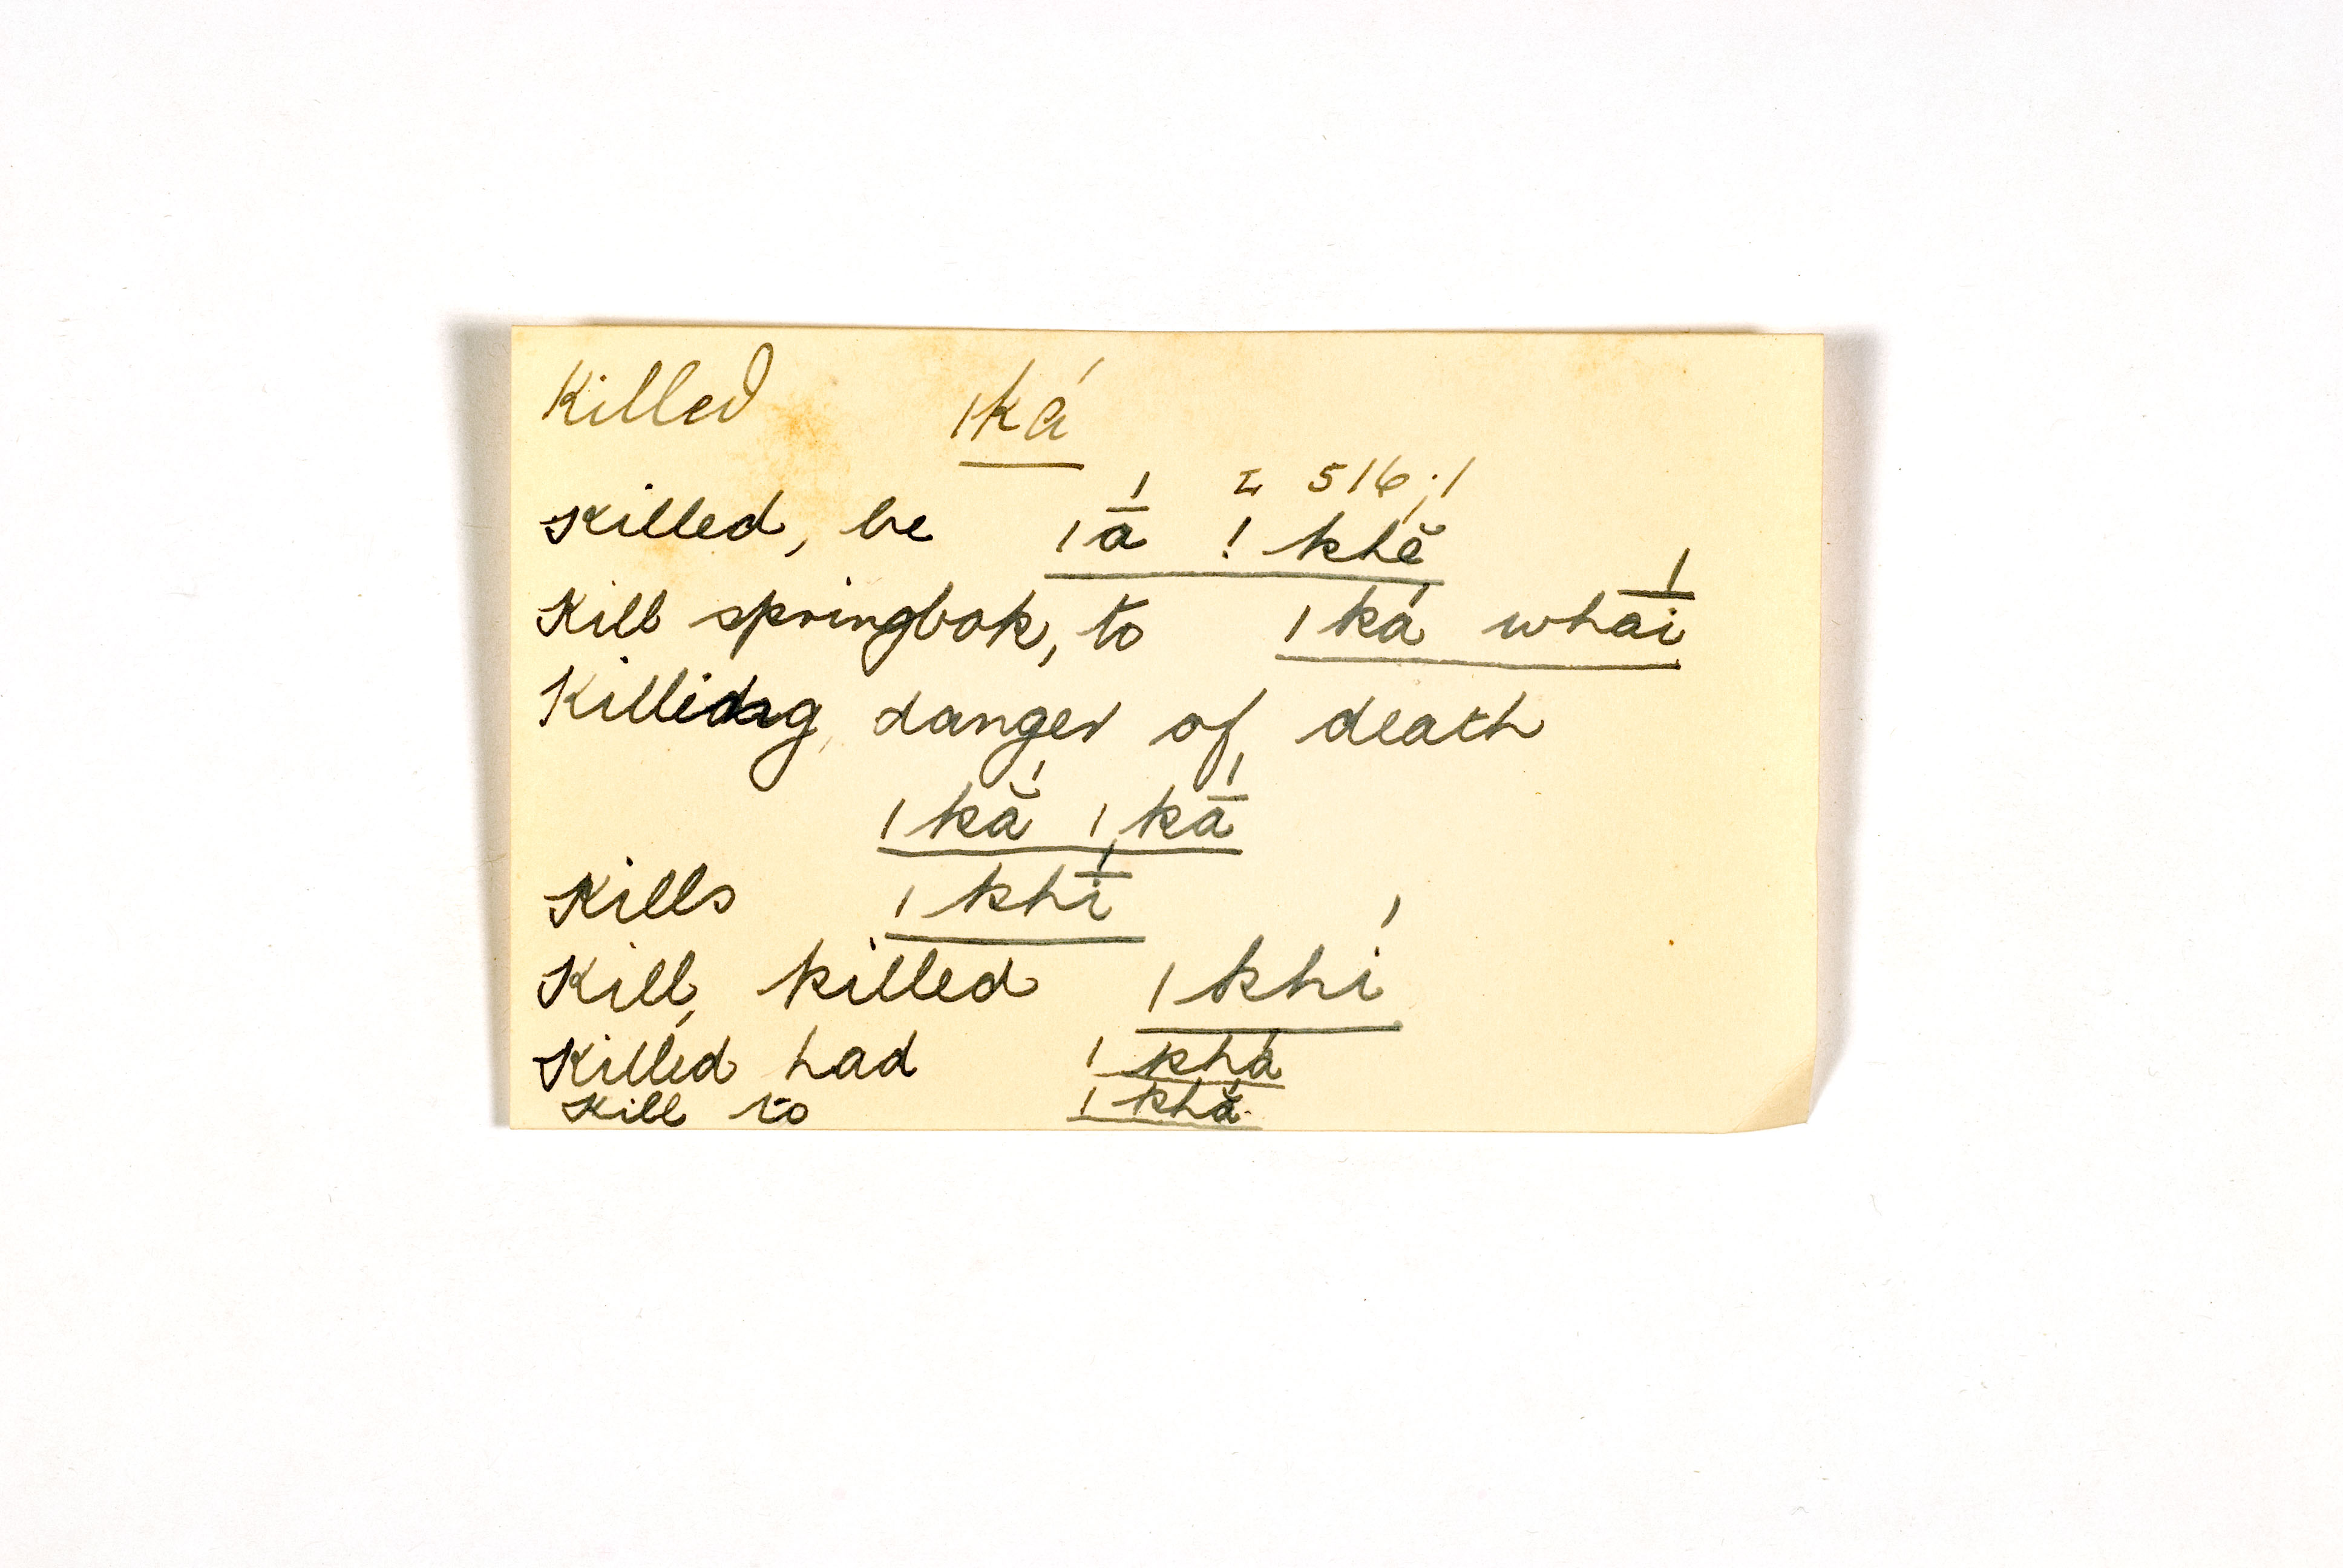 Killed ǀká
I 516;1
Killed, be ǀā́ !khĕ́
Kill springbok, to ǀká whā́i
Killing, danger of death
ǀkắ ǀkā́
Kills ǀkhī́
Kill, killed ǀkhí
Killed had ǀkhá
Kill to ǀkhắ